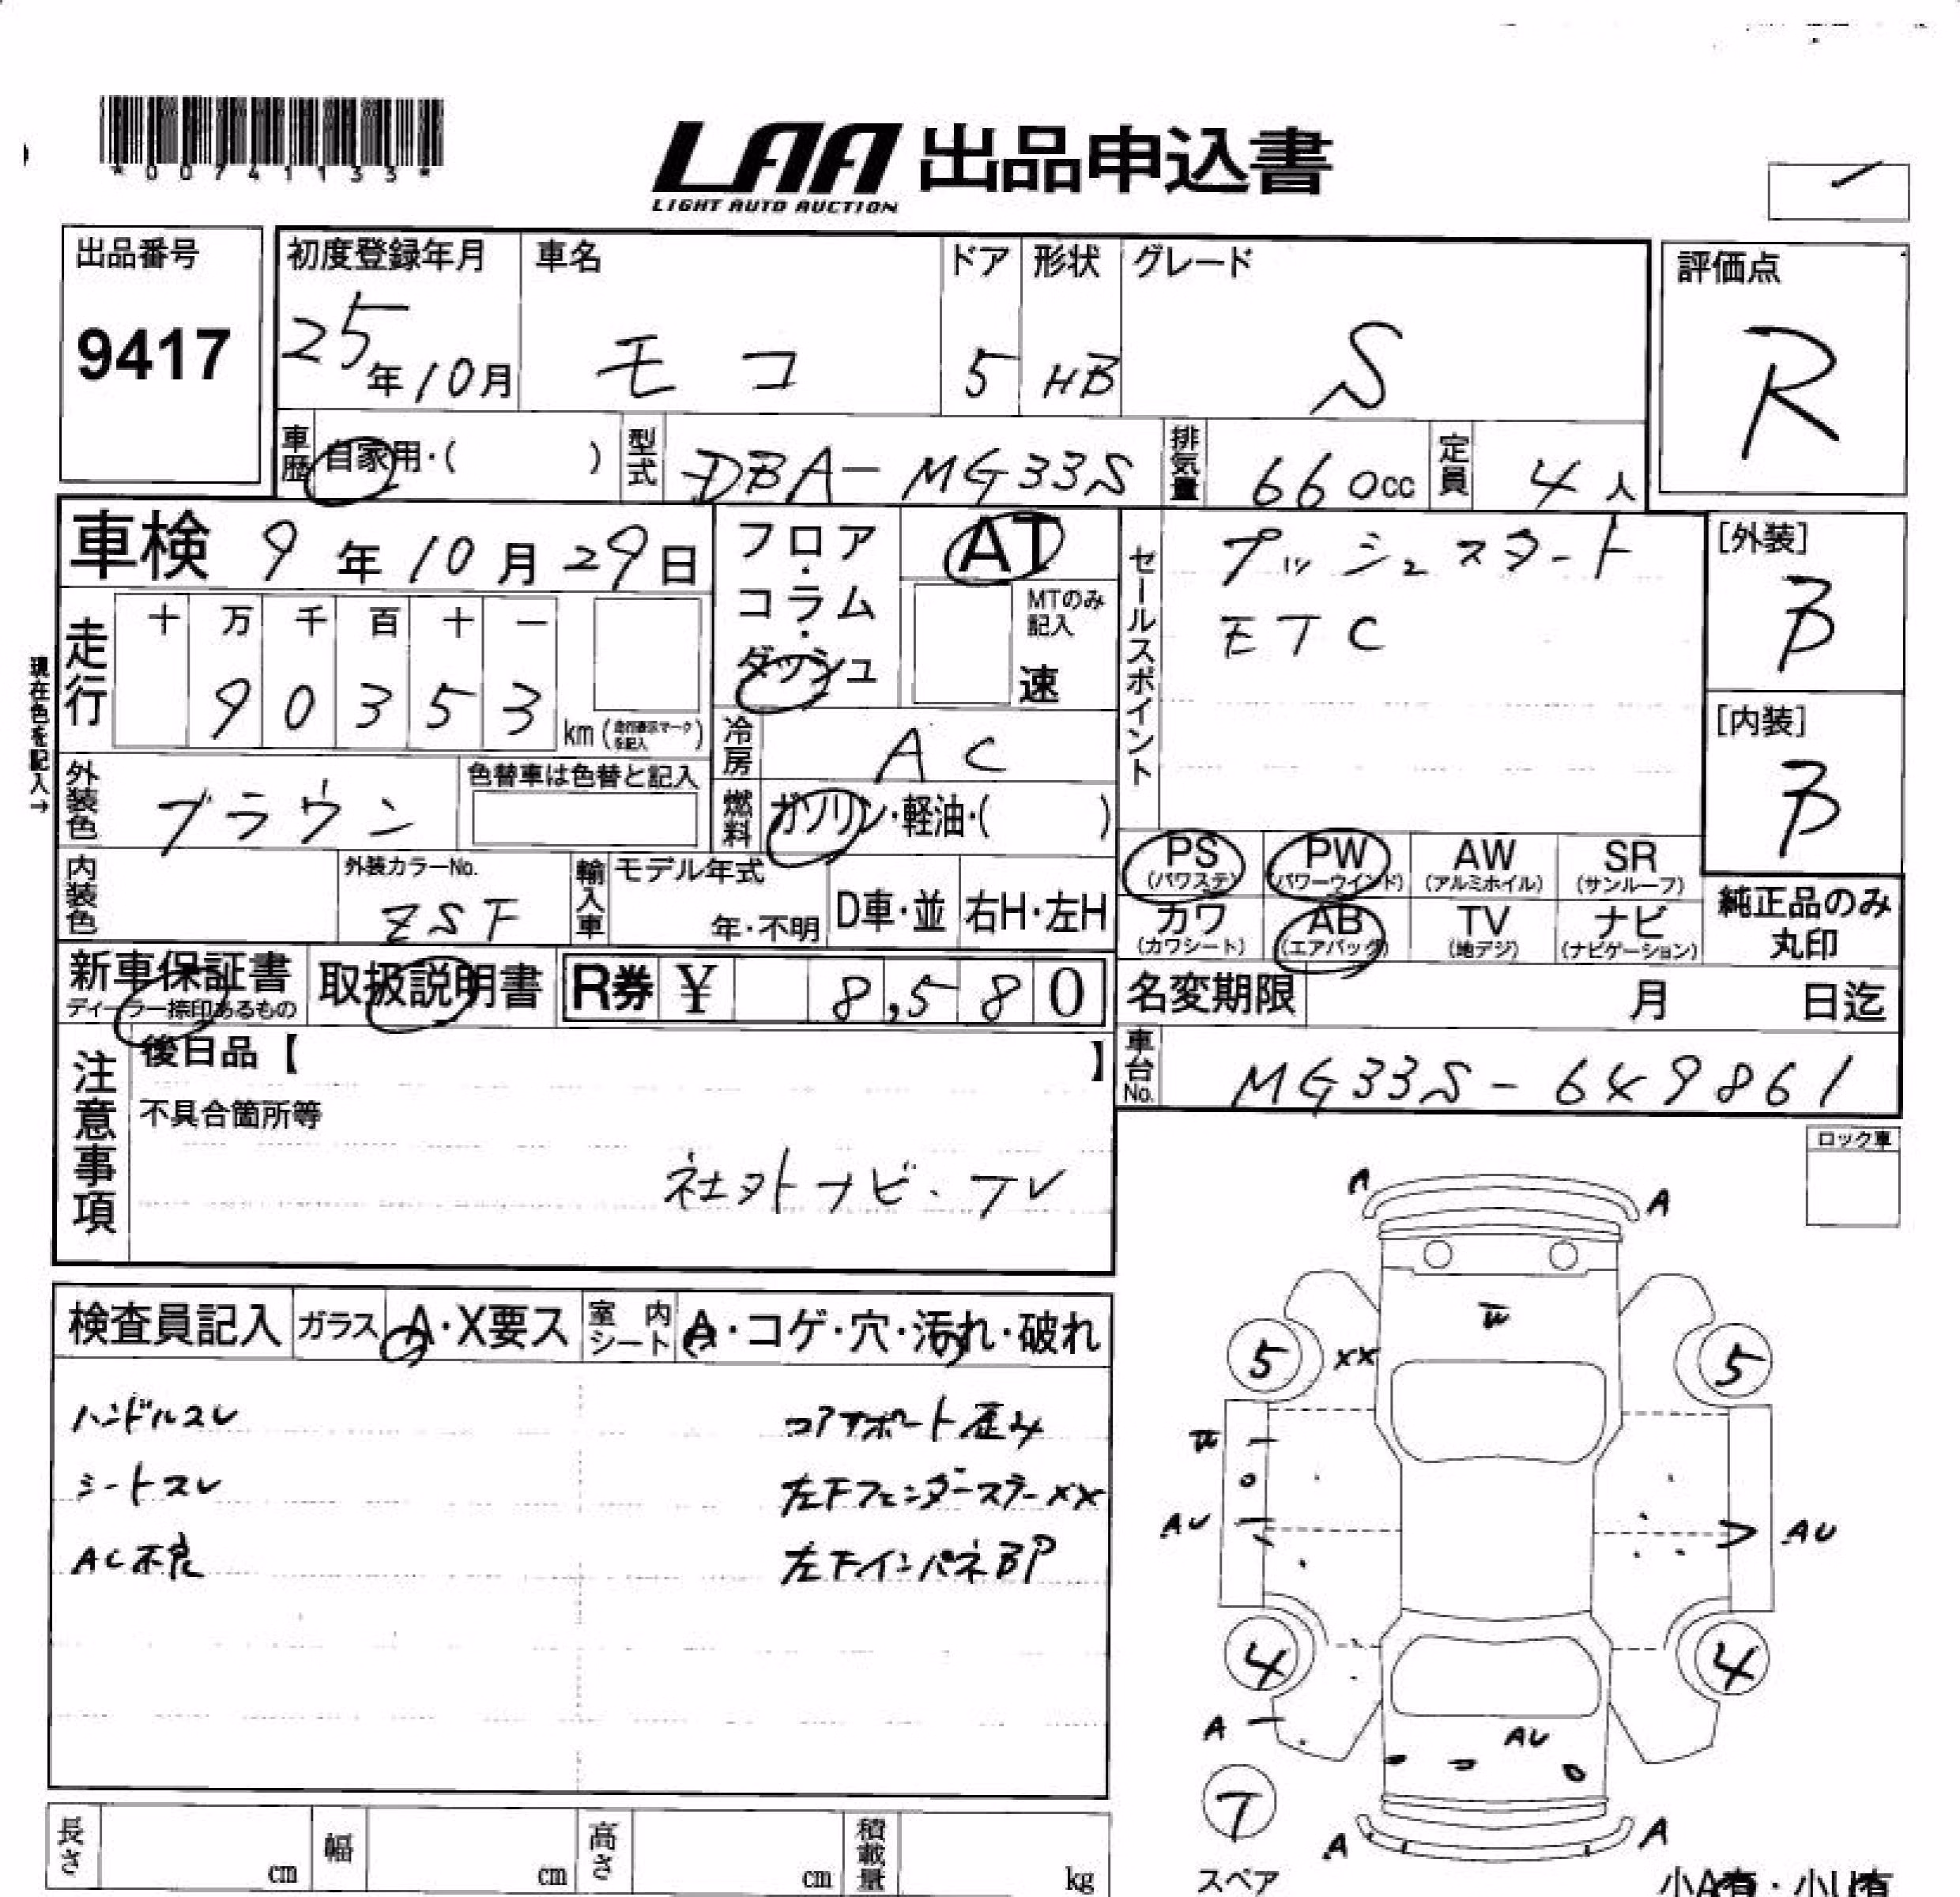 *00741133*
LAA 出品申込書
LIGHT AUTO AUCTION
出品番号
9417
初度登録年月
25年10月
車名
モコ
ドア
5
形状
HB
グレード
S
評価点
R
車歴
自家用・( )
型式
DBA-MG33S
排気量
660cc
定員
4人
車検 9年10月29日
フロア・コラム・ダッシュ
AT
MTのみ記入
速
セールスポイント
プッシュスタート
ETC
[外装]
B
[内装]
B
現在色を記入→
走行
十 万 千 百 十 一
9 0 3 5 3
km(走行表示マークを記入)
冷房
AC
外装色
ブラウン
色替車は色替と記入
燃料
ガソリン・軽油・( )
内装色
外装カラーNo.
ZSF
輸入車
モデル年式
年・不明
D車・並
右H・左H
PS(パワステ)
PW(パワーウインド)
AW(アルミホイル)
SR(サンルーフ)
カワ(カワシート)
AB(エアバッグ)
TV(地デジ)
ナビ(ナビゲーション)
純正品のみ丸印
新車保証書
ディーラー捺印あるもの
取扱説明書
R券 ¥ 8,580
名変期限 月 日迄
車台No.
MG33S-649861
注意事項
後日品【 】
不具合箇所等
社外ナビ・TV
ロック車
検査員記入
ガラス A・X要ス
室内シート A・コゲ・穴・汚れ・破れ
ハンドルスレ
シートスレ
AC不良
コアサポート歪み
左FフェンダーステーXX
左FインパネBP
A A
5 XX 5
AU AU
4 4
A
AU
T
スペア
A A
小A有・小U有
長さ cm
幅 cm
高さ cm
積載量 kg